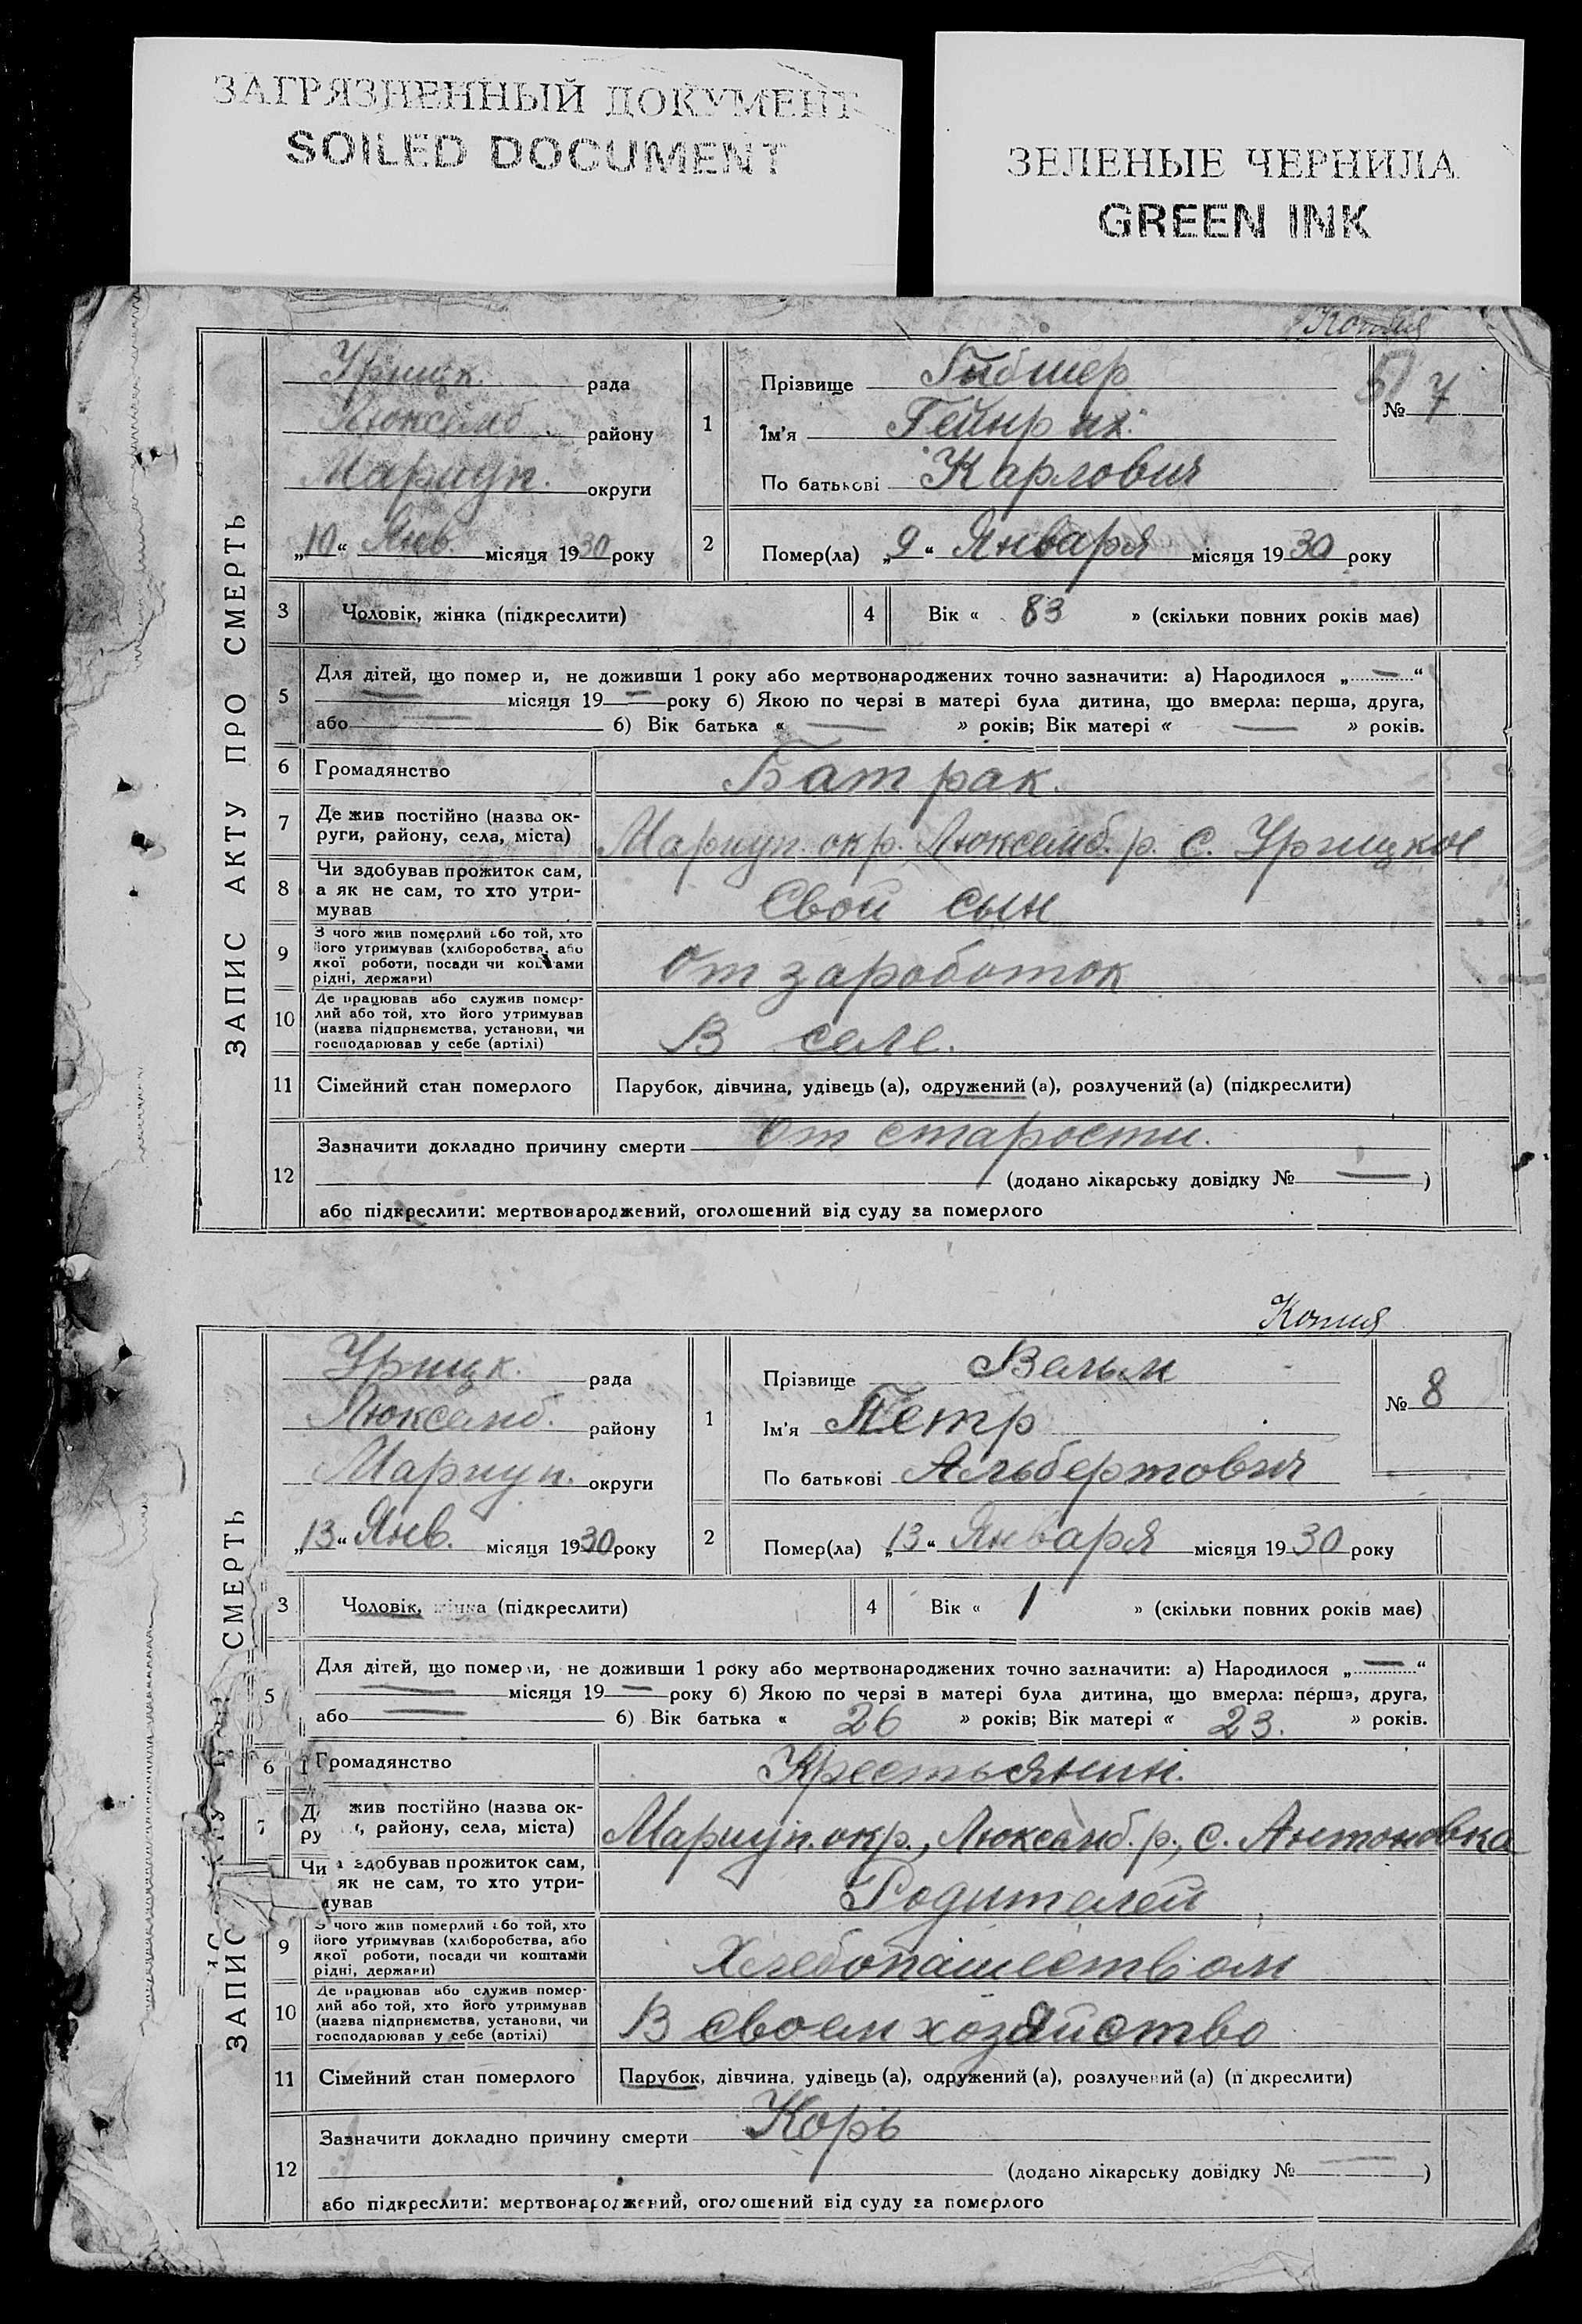 ЗАГРЯЗНЕННЫЙ ДОКУМЕНТ
SOILED DOCUMENT
ЗЕЛЕНЫЕ ЧЕРНИЛА
GREEN INK
Копия
ЗАПИС АКТУ ПРО СМЕРТЬ
Урицк. рада
Люксемб. району
Мариуп. округи
„10“ Янв. місяця 1930 року
1 Прізвище Гибшер
Ім'я Гейнрих.
По батькові Карлович
№ 7
2 Помер(ла) „9“ Января місяця 1930 року
3 Чоловік, жінка (підкреслити)
4 Вік « 83 » (скільки повних років має)
5 Для дітей, що помер и, не доживши 1 року або мертвонароджених точно зазначити: а) Народилося „—“
— місяця 19— року б) Якою по черзі в матері була дитина, що вмерла: перша, друга,
або — б) Вік батька « — » років; Вік матері « — » років.
6 Громадянство Батрак.
7 Де жив постійно (назва ок-
руги, району, села, міста) Мариуп. окр. Люксемб. р. с. Урицкое
8 Чи здобував прожиток сам,
а як не сам, то хто утри-
мував Свой сын
9 З чого жив померлий або той, хто
його утримував (хліборобства, або
якої роботи, посади чи коштами
рідні, держави) От зароботок
10 Де працював або служив помер-
лий або той, хто його утримував
(назва підпрнємства, установи, чи
господарював у себе (артілі) В селе.
11 Сімейний стан померлого Парубок, дівчина, удівець (а), одружений (а), розлучений (а) (підкреслити)
12 Зазначити докладно причину смерти От старости.
(додано лікарську довідку № — )
або підкреслити: мертвонароджений, оголошений від суду за померлого
Копия
ЗАПИС СМЕРТЬ
Урицк. рада
Люксемб. району
Мариуп. округи
„13“ Янв. місяця 1930 року
1 Прізвище Вальм
Ім'я Петр
По батькові Альбертович
№ 8
2 Помер(ла) „13“ Января місяця 1930 року
3 Чоловік, жінка (підкреслити)
4 Вік « 1 » (скільки повних років має)
5 Для дітей, що померли, не доживши 1 року або мертвонароджених точно зазначити: а) Народилося „—“
— місяця 19— року б) Якою по черзі в матері була дитина, що вмерла: перша, друга,
або — б) Вік батька « 26 » років; Вік матері « 23. » років.
6 Громадянство Крестьянин.
7 Д жив постійно (назва ок-
ру , району, села, міста) Мариуп. окр., Люксемб. р., с. Антоновка
Чи здобував прожиток сам,
як не сам, то хто утри-
мував Родителей
9 З чого жив померлий або той, хто
його утримував (хліборобства, або
якої роботи, посади чи коштами
рідні, держави) Хлебопашеством
10 Де працював або служив помер-
лий або той, хто його утримував
(назва підпрнємства, установи, чи
господарював у себе (артілі) В своем хозяйство
11 Сімейний стан померлого Парубок, дівчина, удівець (а), одружений (а), розлучений (а) (підкреслити)
12 Зазначити докладно причину смерти Корь
(додано лікарську довідку № — )
або підкреслити: мертвонароджений, оголошений від суду за померлого